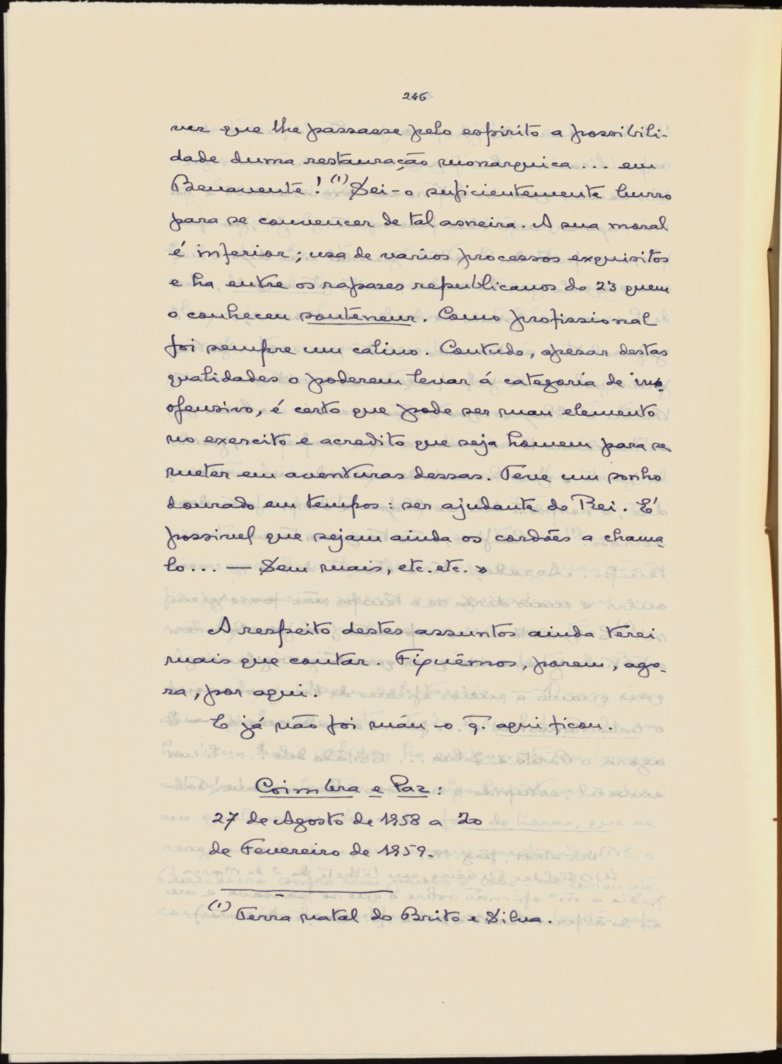 246
ver que lhe passasse pelo espirito a possibili-
dade duma restauração monarquica ... em
Benavente! (1) Sei-o suficientemente burro
para se convencer de tal asneira. A sua moral
é inferior; usa de varios processos exquisitos
e ha entre os rapases republicanos do 23 quem
o conheceu souteneur. Como profissional
foi sempre um calino. Contudo, apesar destas
qualidades o poderem levar á categoria de in-
ofensivo, é certo que pode ser mau elemento
no exercito e acredito que seja homem para se
meter em aventuras dessas. Teve um sonho
dourado em tempos: ser ajudante do Rei. É
possivel que sejam ainda os cordões a chama-
lo ... — Sem mais, etc. etc. »
A respeito destes assuntos ainda terei
mais que contar. Fiquêmos, porem, ago-
ra, por aqui.
E já não foi máu - o q. aqui ficou.
Coimbra e Paz:
27 de Agosto de 1958 a 20
de Fevereiro de 1959.
(1) Terra natal do Brito e Silva.